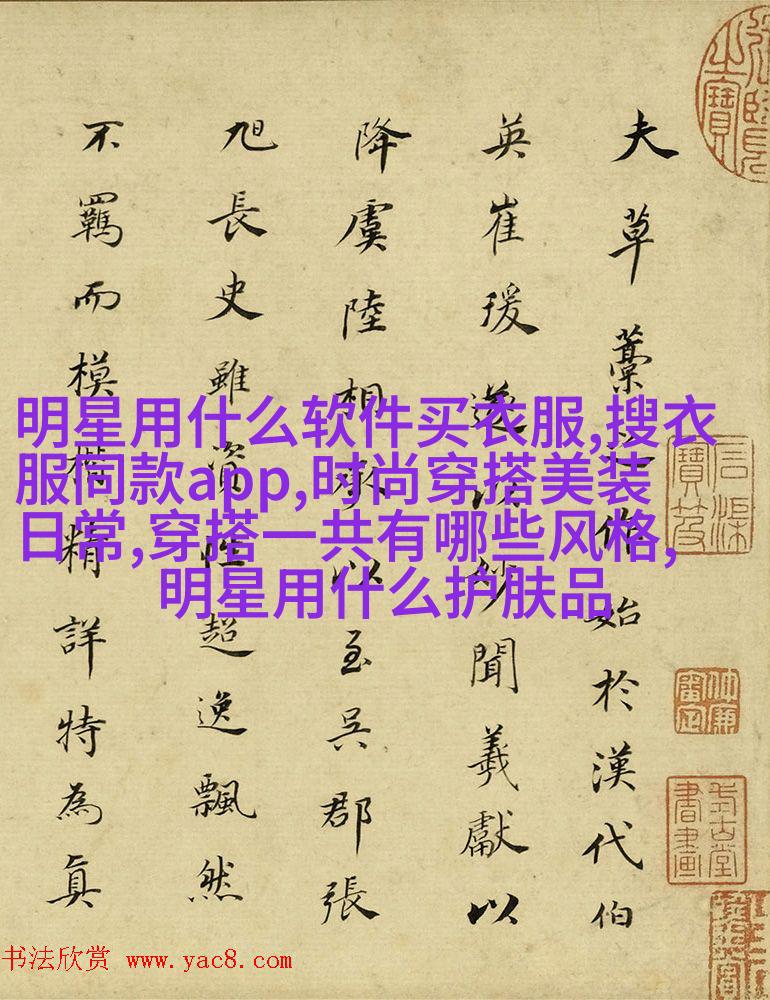 明星用什么软件买衣服,搜衣
服同款app,时尚穿搭美装
日常,穿搭一共有哪些风格,
明星用什么护肤品
夫草藁之作始於漢代伯
英崔瑗逸以妙聞羲獻以
降虞陸相承以至吳郡張
旭長史雖資性超逸飄然
不羈而模楷精詳特為真
书法欣赏 www.yac8.com